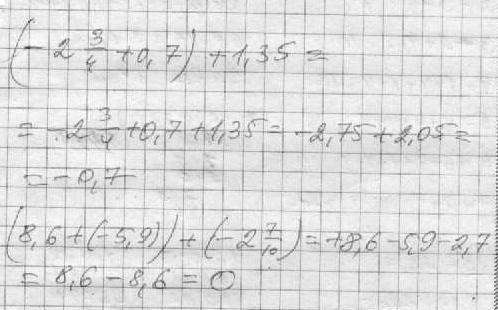 (-2 3/4 + 0,7) + 1,35 =
= -2 3/4 + 0,7 + 1,35 = -2,75 + 2,05 =
= -0,7
(8,6 + (-5,9)) + (-2 7/10) = +8,6 - 5,9 - 2,7
= 8,6 - 8,6 = 0